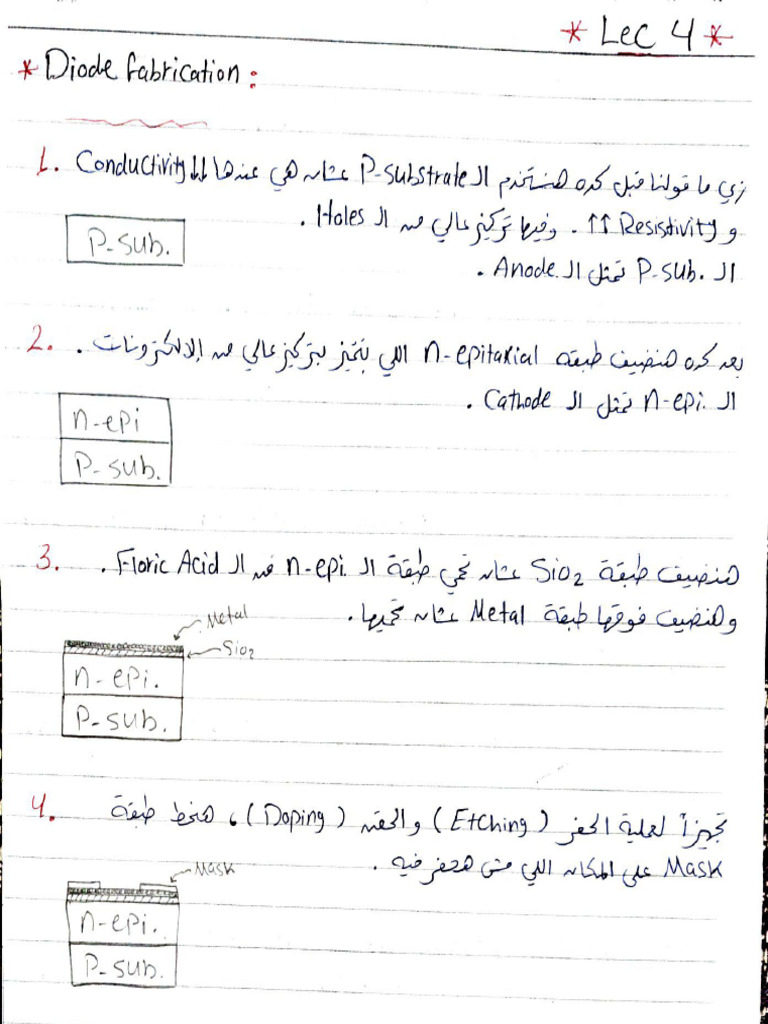 * Lec 4 *
* Diode fabrication :
1. زي ما قولنا قبل كده هنستخدم الـ P-substrate عشان هي عندها Conductivity ↓↓
و Resistivity ↑↑ . وفيها تركيز عالي من الـ Holes .
الـ P-sub. تمثل الـ Anode .
P-sub.
2. بعد كده هنضيف طبقه n-epitaxial اللي بتتميز بتركيز عالي من الالكترونات .
الـ n-epi. تمثل الـ Cathode .
n-epi
P-sub.
3. هنضيف طبقة SiO2 عشان تحمي طبقة الـ n-epi. من الـ Floric Acid .
وهنضيف فوقها طبقة Metal عشان تحميها.
Metal
SiO2
n-epi.
P-sub.
4. تجهيزاً لعملية الحفر (Etching) والحقن (Doping) ، هنحط طبقة
Mask على المكان اللي مش هحفر فيه .
Mask
n-epi.
P-sub.